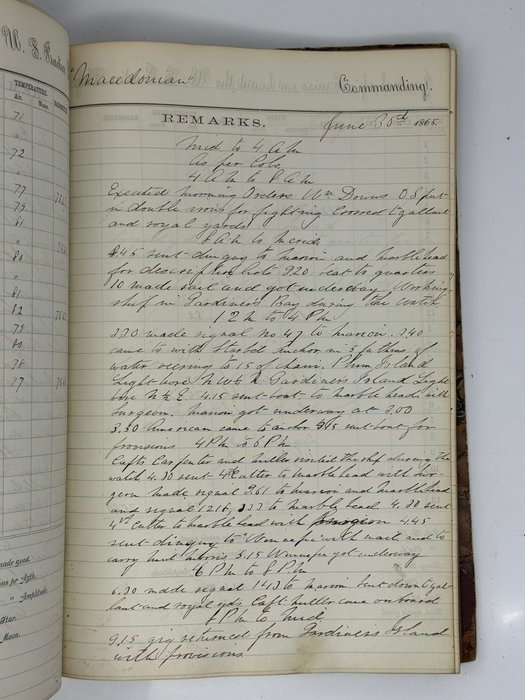 U. S. Practice
"Macedonian"
Commanding.
TEMPERATURE.
Air. Water.
REMARKS.
June 30th 1865.
71
"
72
"
77
79
81
"
80
"
81
82
73
80
78
77
Mid. to 4 A M
As per Cols
4 A M to 8 A M
Executed Morning Orders Wm Downs O.S. put
in double irons for fighting Crossed t,gallant
and royal yards
8 A M to Merid
8.45 sent dinguy to marion and marblehead
for description lists 9.20 beat to quarters
10 made sail and got underway Working
ship in Gardiners Bay during the Watch
12 M to 4 P M
3.30 made signal No 47 to marion. 3.40
came to with Starbd anchor in 5 fathoms of
water veering to 15 of chain. Plum Island
Light bore Gardiners Island Light
bore N & E. 4.15 sent boat to marblehead with
Surgeon. marion got underway at 3.00
3.50 American came to anchor sent boat for
provisions 4 P M to 6 P M
Capts Carpenter and miller visited the ship during the
watch. 4.30 sent 4th Cutter to marblehead with Sur-
geon made signal 961 to marion and marblehead
and signal 1216, to marblehead. 4.30 sent
4th Cutter to marblehead with surgeon 4.45
sent dinguy to Winnepe with mail and to
carry 5.15 Winnepe got underway
6 P M to 8 P M
6.30 made signal 143 to marion sent down t,gal-
lant and royal yds Capt miller came onboard
8 P M to Mid
9.15 gig returned from Gardiners Island
with provisions
made good.
"
Amplitude.
Star.
Moon.